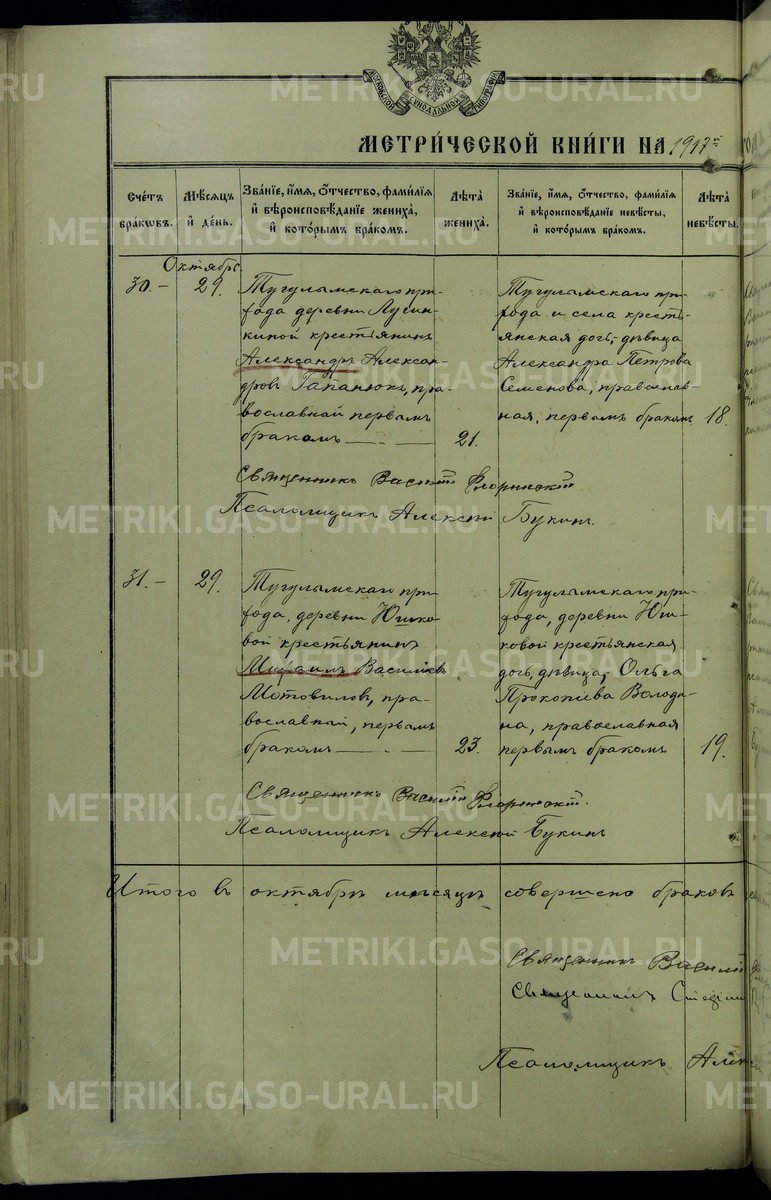 МЕТРИ́ЧЕСКОЙ КНИ́ГИ НА 1917
Сче́тъ бра́кѡвъ.
Мѣ́сяцъ и́ день.
Зва́нїе, и́мя, ѻ́тчество, фами́лїя и́ вѣроисповѣ́данїе жениха̀, и́ кото́рымъ бра́комъ.
Лѣ́та жениха̀.
Зва́нїе, и́мя, ѻ́тчество, фами́лїя и́ вѣроисповѣ́данїе невѣ́сты, и́ кото́рымъ бра́комъ.
Лѣ́та невѣ́сты.
Октябрь
30.—
29.
Тугулымскаго при-
хода деревни Лусин-
киной крестьянинъ
Александръ Алексан-
дровъ Гапанюкъ, пра-
вославный первымъ
бракомъ — . —
21.
Тугулымскаго при-
хода и села кресть-
янская дочь, дѣвица
Александра Петрова
Семенова, православ-
ная, первымъ бракомъ
18.
Священникъ Василій Флоринскій
Псаломщикъ Алексій Букинъ.
31.—
29.
Тугулымскаго при-
хода, деревни Юшко-
вой крестьянинъ
Михаилъ Василіевъ
Мотовиловъ, пра-
вославный, первымъ
бракомъ — . —
23.
Тугулымскаго при-
хода, деревни Юш-
ковой крестьянская
дочь, дѣвица, Ольга
Прокопіева Володи-
на, православная
первымъ бракомъ
19.
Священникъ Василій Флоринскій.
Псаломщикъ Алексій Букинъ
Итого въ октябрѣ мѣсяцѣ совершено браковъ
Священникъ Василій
Псаломщикъ
METRIKI.GASO-URAL.RU